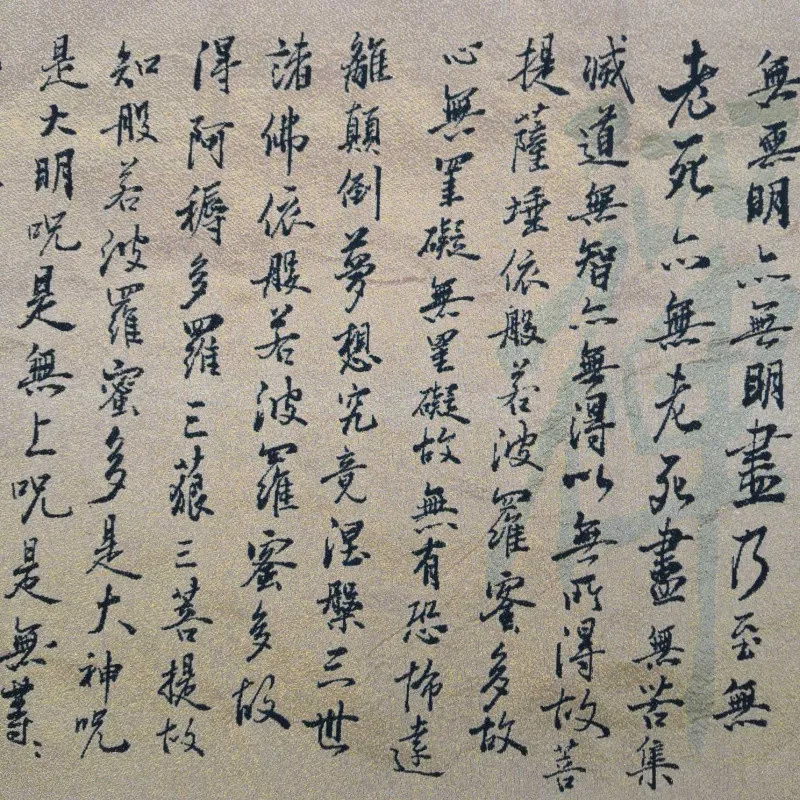 無無明亦無明盡乃至無
老死亦無老死盡無苦集
滅道無智亦無得以無所得故菩
提薩埵依般若波羅蜜多故
心無罣礙無罣礙故無有恐怖遠
離顛倒夢想究竟涅槃三世
諸佛依般若波羅蜜多故
得阿耨多羅三藐三菩提故
知般若波羅蜜多是大神呪
是大明呪是無上呪是無等〻